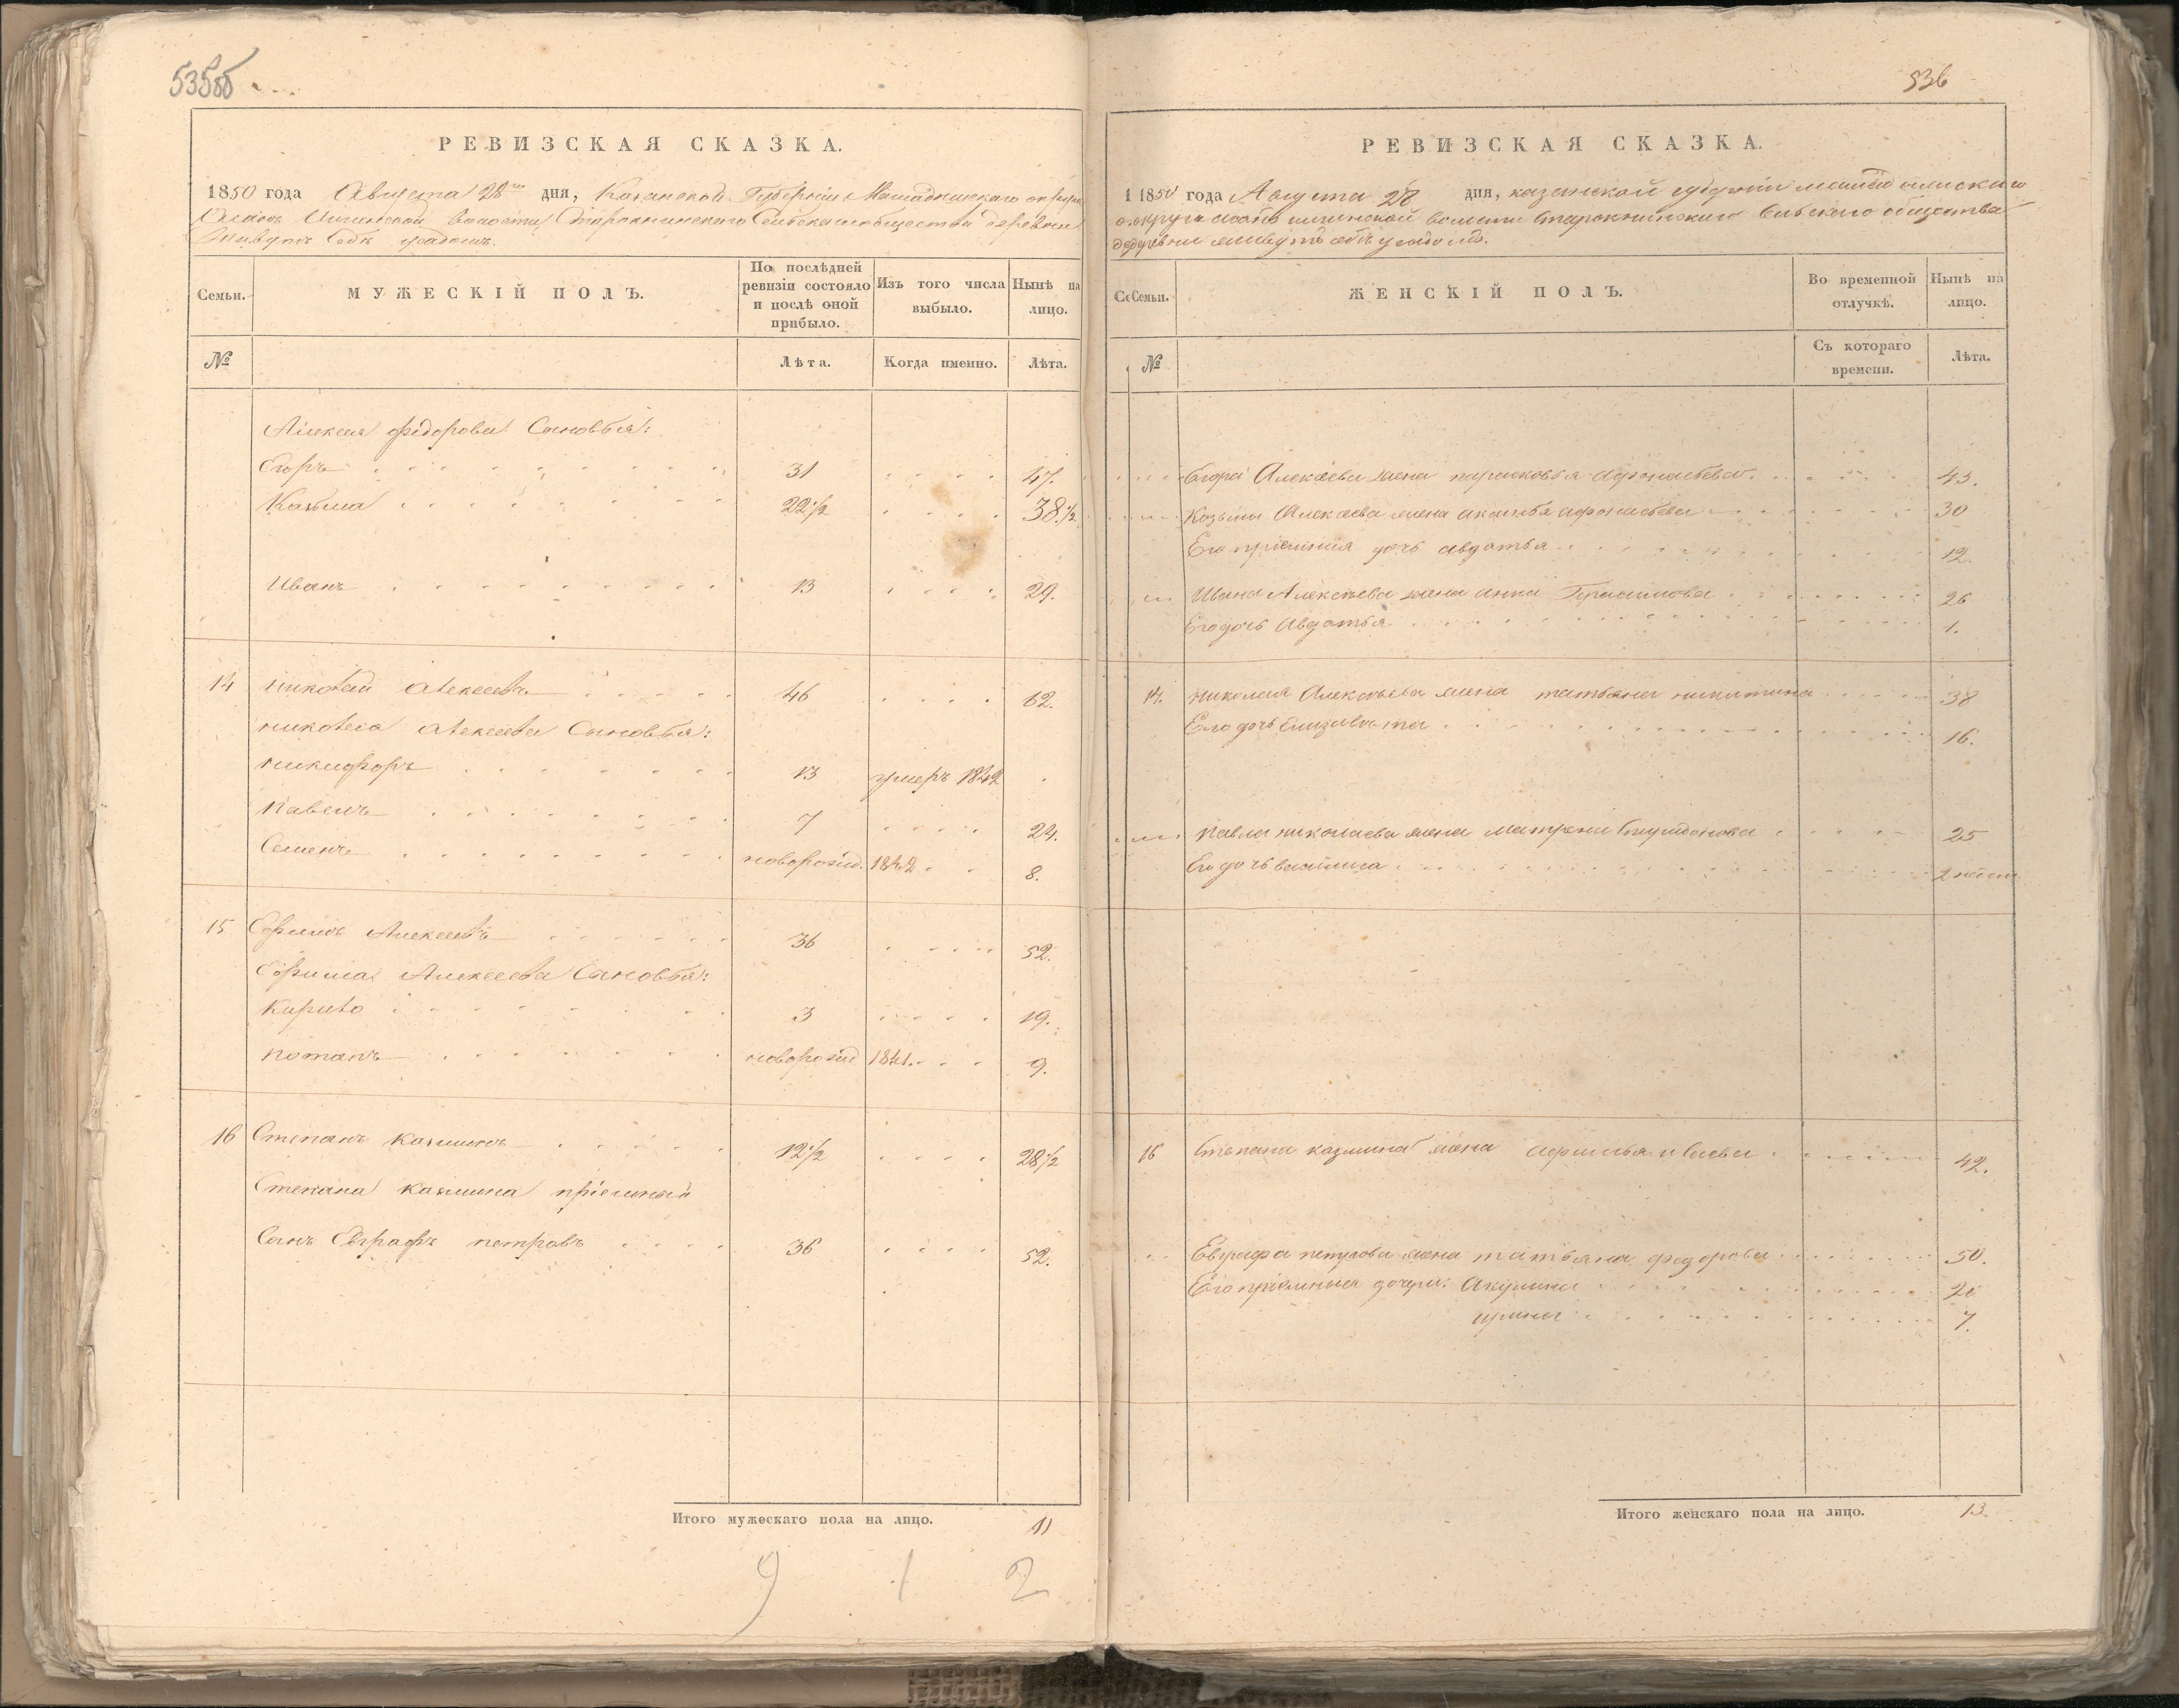 535об
РЕВИЗСКАЯ СКАЗКА.
1850 года Августа 28го дня, Казанской Губернии Мамадышского округа
волости Старокнинского Сельскаго общества деревни
РЕВИЗСКАЯ СКАЗКА
Семьи.
МУЖЕСКІЙ ПОЛЪ.
По послѣдней ревизіи состояло и послѣ оной прибыло.
Изъ того числа выбыло.
Нынѣ на лицо.
№
Лѣта.
Когда именно.
Лѣта.
Алексея Федорова Сыновья:
Егоръ 31 47.
Казьма 22½ 38½
Иванъ 13 29.
14 Николай Алексеевъ 46 62.
Николая Алексеева Сыновья:
Никифоръ 13 умеръ 1842
Павелъ 7 24.
Семенъ новорожд. 1842 8.
15 Ефимъ Алексеевъ 36 52.
Ефима Алексеева Сыновья:
Кирило 3 19.
Потапъ новорожд 1841. 9.
16 Степанъ Казминъ 12½ 28½
Степана Казмина пріемный
Сынъ Евграфъ Петровъ 36 52.
Итого мужескаго пола на лицо. 11
9 1 2
536
РЕВИЗСКАЯ СКАЗКА.
1850 года Августа 28 дня, казанской губерніи
округа волости Старокнинскаго Сельскаго общества
деревни
Семьи.
ЖЕНСКІЙ ПОЛЪ.
Во временной отлучкѣ.
Нынѣ на лицо.
№
Съ котораго времени.
Лѣта.
Егора Алексѣева жена парасковья Афонасьева 43.
Козьмы Алексѣева жена Афонасьева 30
Его пріемная дочь авдотья 12.
Ивана Алексѣева жена анна Герасимова 26
Его дочь Авдотья 1.
14. Николая Алексѣева жена татьяна никитина 38
Его дочь Елизавета 16.
Павла николаева жена матрена 25
Его дочь василиса 2
16 Степана казмина жена 42.
Евграфа петрова жена татьяна федорова 50.
Его пріемныя дочери: Акулина 20
ирина 7.
Итого женскаго пола на лицо. 13.